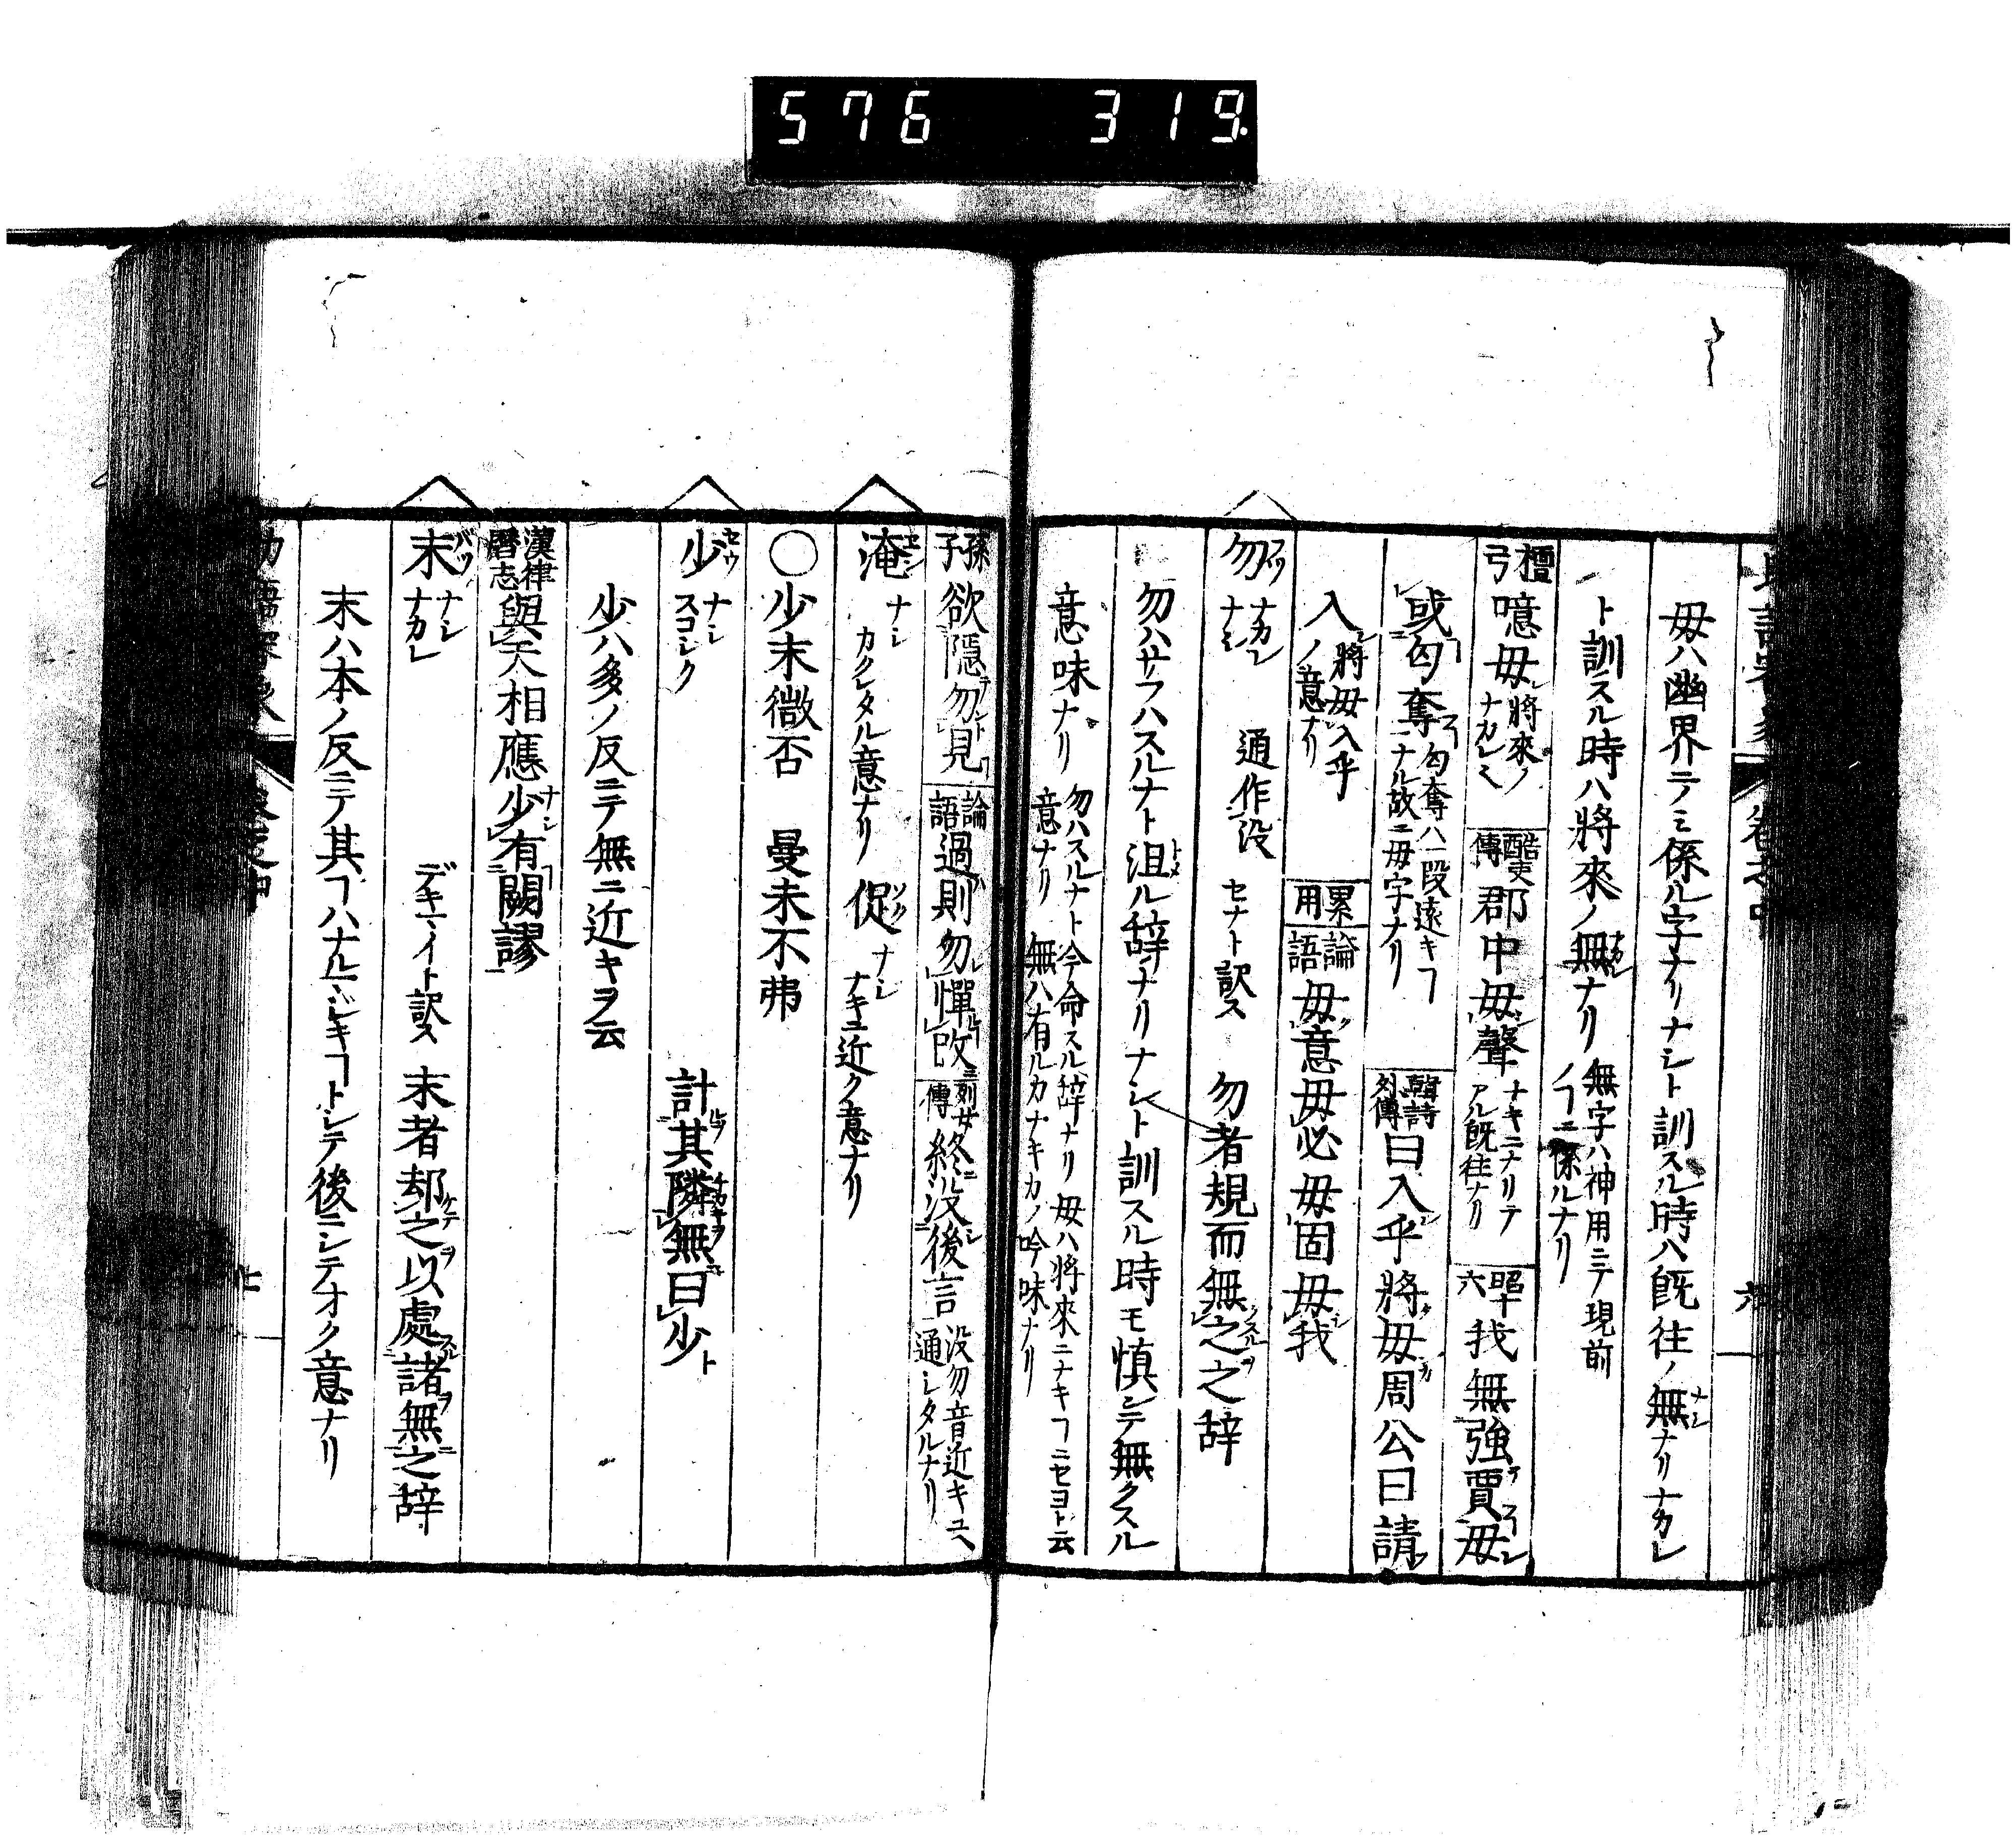 576 319
毋ハ幽界ニテミニ係ル字ナリナシト訓スル時ハ既往ノ無ナリナカレ
ト訓スル時ハ將來ノ無ナリ 無字ハ神用ニテ現前ノヿニ係ルナリ
檀弓 噫毋 將來ノナカレミ 酷吏傳 郡中毋聲 ナキニナリテアル既往ナリ 昭十六 我無強賈毋
或匃奪 匃奪ハ一段遠キヿナル故ニ毋字ナリ 韓詩外傳 曰入乎將毋周公曰請
入 將毋入乎ノ意ナリ 累用 論語 毋意毋必毋固毋我
勿 ナカレ ナシ 通作没 セナト訳ス 勿者規而無之之辞
勿ハサフハスルナト沮ル辞ナリナシト訓スル時モ慎シテ無クスル
意味ナリ 勿ハスルナト今命スル辞ナリ毋ハ將來ニナキヿニセヨト云意ナリ無ハ有ルカナキカノ吟味ナリ
孫子 欲隠勿見 論語 過則勿憚改 列女傳 終没後言 没勿音近キユヘ通シタルナリ
淹 ナシ カクレタル意ナリ 促 ナシ ナキニ近ク意ナリ
〇少末微否 曼未不弗
少 セウ ナシ スコシク 計其隣無曰少
少ハ多ノ反ニテ無ニ近キヲ云
漢律曆志 與天相應少有闕謬
末 バツ ナシ ナカレ デキマイト訳ス 末者却之以處諸無之辞
末ハ本ノ反ニテ其ヿハナルマジキヿトシテ後ニシテオク意ナリ